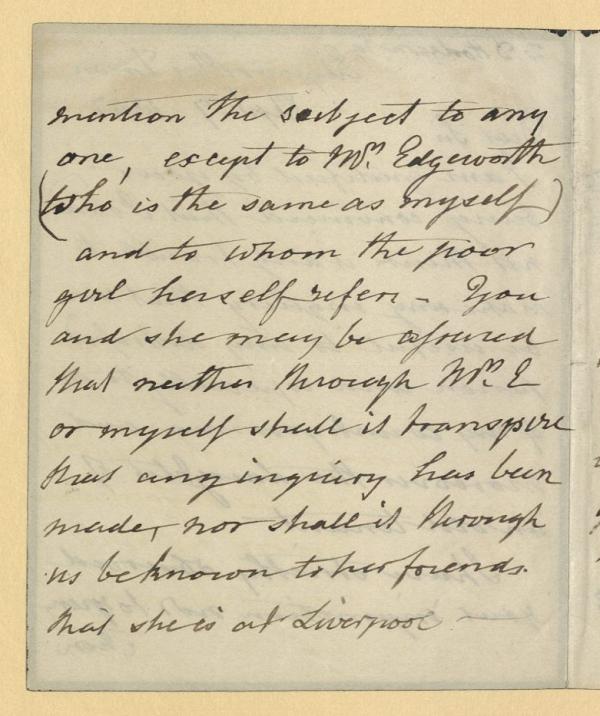 mention the subject to any
one, except to Mrs. Edgeworth
(who is the same as myself)
and to whom the poor
girl herself refers - You
and she may be assured
that neither through Mrs. E
or myself shall it transpire
that any inquiry has been
made, nor shall it through
us be known to her friends.
that she is at Liverpool -